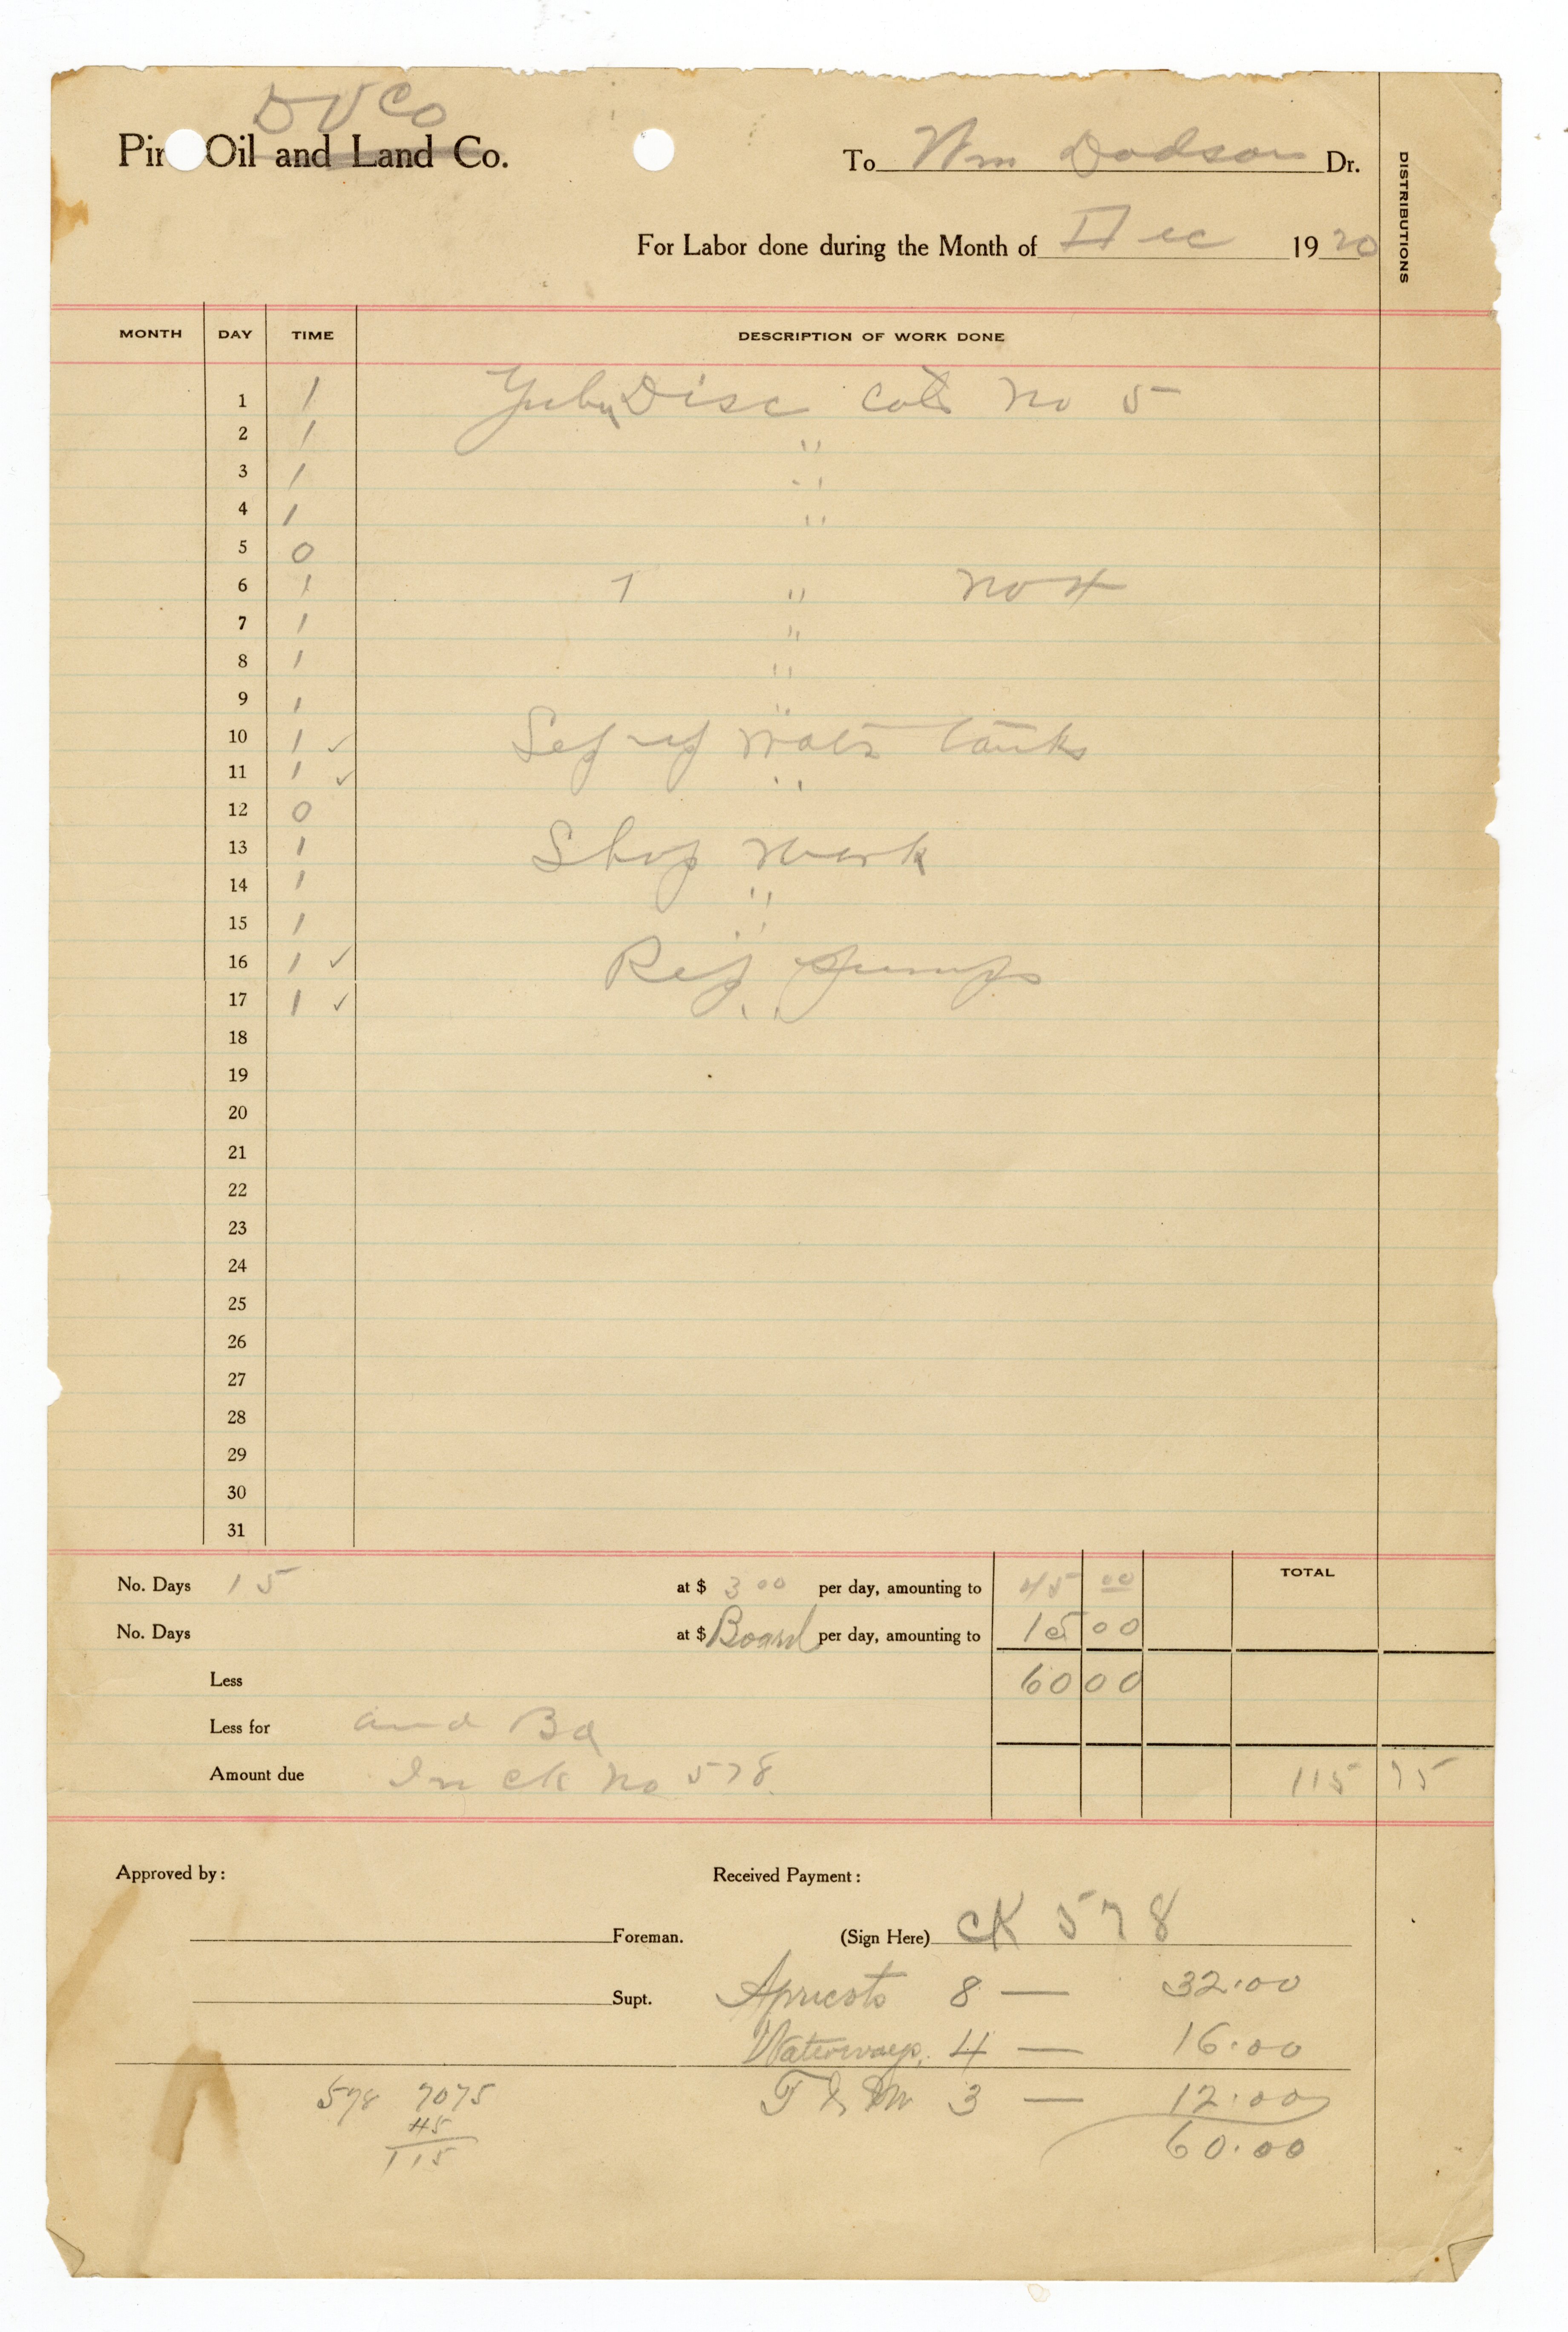 D V Co
Pir Oil and Land Co.
To Wm Dodson Dr.
For Labor done during the Month of Dec 1920
DISTRIBUTIONS
MONTH DAY TIME DESCRIPTION OF WORK DONE
1 1 Disc Cots No 5
2 1 "
3 1 "
4 1 "
5 0
6 1 " No 4
7 1 "
8 1 "
9 1 "
10 1 ✓ tanks
11 1 ✓ "
12 0
13 1 Shop Work
14 1 "
15 1 "
16 1 ✓ Rep pumps
17 1 ✓ "
18
19
20
21
22
23
24
25
26
27
28
29
30
31
No. Days 15 at $ 3 00 per day, amounting to 45 00 TOTAL
No. Days at $ Board per day, amounting to 15 00
Less 60 00
Less for and Bd
Amount due In ck No 578 115 75
Approved by: Received Payment:
Foreman. (Sign Here) CK 578
Supt. Apricots 8 — 32.00
Waterways. 4 — 16.00
578 7075 3 — 12.00
45 60.00
115